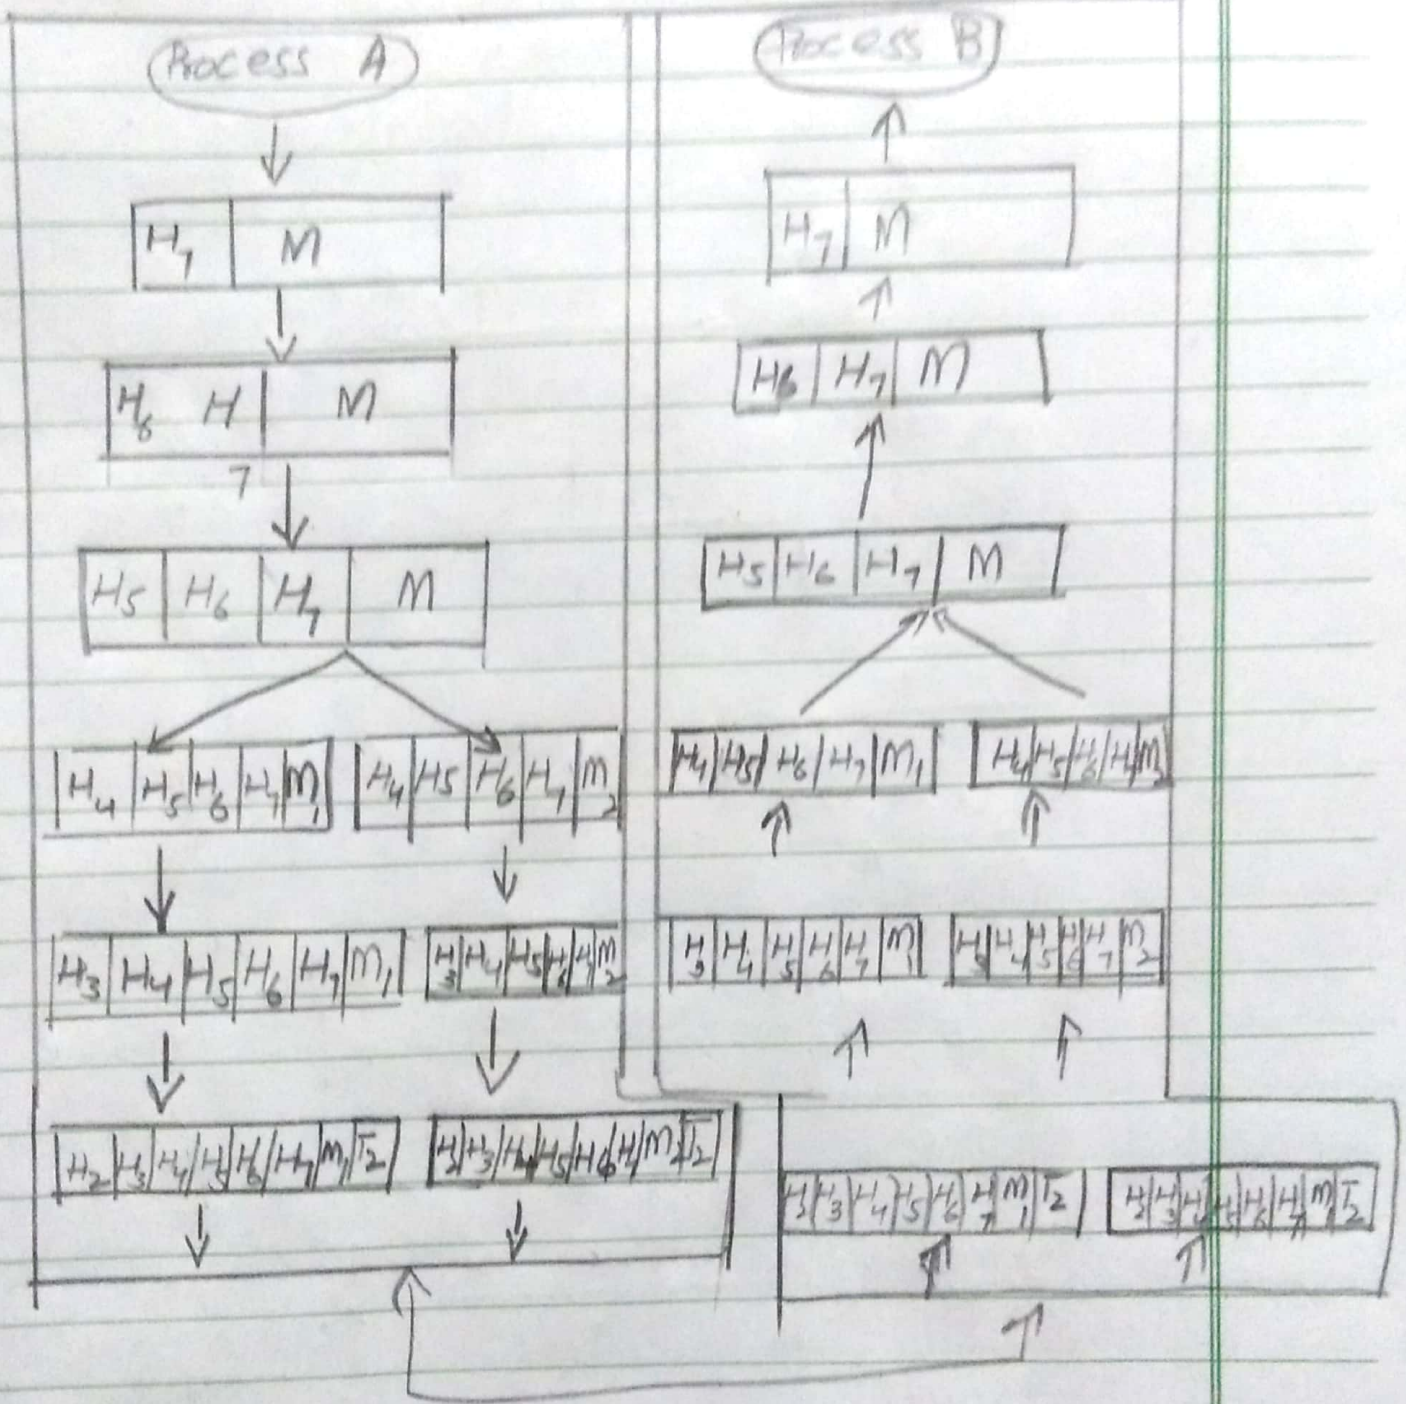 Process A
H7 M
H6 H7 M
H5 H6 H7 M
H4 H5 H6 H7 M1
H4 H5 H6 H7 M2
H3 H4 H5 H6 H7 M1
H3 H4 H5 H6 H7 M2
H2 H3 H4 H5 H6 H7 M1 T2
H2 H3 H4 H5 H6 H7 M2 T2
Process B
H7 M
H6 H7 M
H5 H6 H7 M
H4 H5 H6 H7 M1
H4 H5 H6 H7 M2
H3 H4 H5 H6 H7 M1
H3 H4 H5 H6 H7 M2
H2 H3 H4 H5 H6 H7 M1 T2
H2 H3 H4 H5 H6 H7 M T2